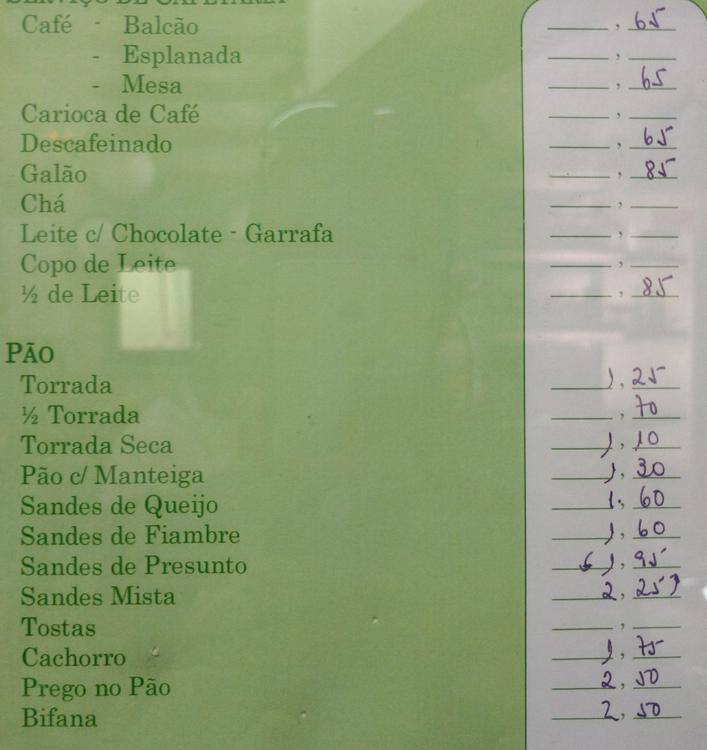 SERVIÇO DE CAFETARIA
Café - Balcão ,65
- Esplanada ,
- Mesa ,65
Carioca de Café ,
Descafeinado ,65
Galão ,85
Chá ,
Leite c/ Chocolate - Garrafa ,
Copo de Leite ,
½ de Leite ,85
PÃO
Torrada 1,25
½ Torrada ,70
Torrada Seca 1,10
Pão c/ Manteiga 1,30
Sandes de Queijo 1,60
Sandes de Fiambre 1,60
Sandes de Presunto 1,95
Sandes Mista 2,25
Tostas ,
Cachorro 1,75
Prego no Pão 2,50
Bifana 2,50